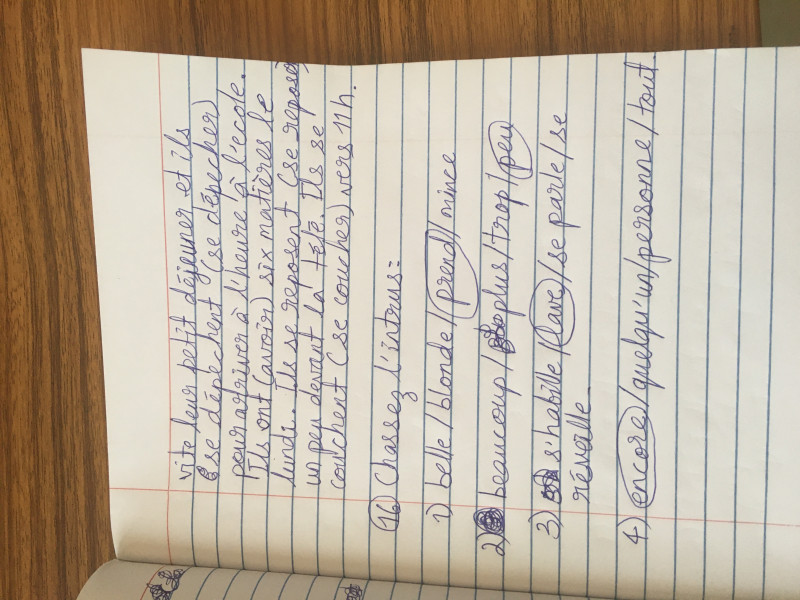 vite leur petit déjeuner et ils
se dépêchent (se dépêcher)
pour arriver à l'heure à l'école.
Ils ont (avoir) six matières le
lundi. Ils se reposent (se reposer)
un peu devant la télé. Ils se
couchent (se coucher) vers 11h.
16) Chassez l'intrus:
1) belle/blonde/prend/mince
2) beaucoup/plus/trop/peu
3) s'habille/lave/se parle/se
réveille
4) encore/quelqu'un/personne/tout.